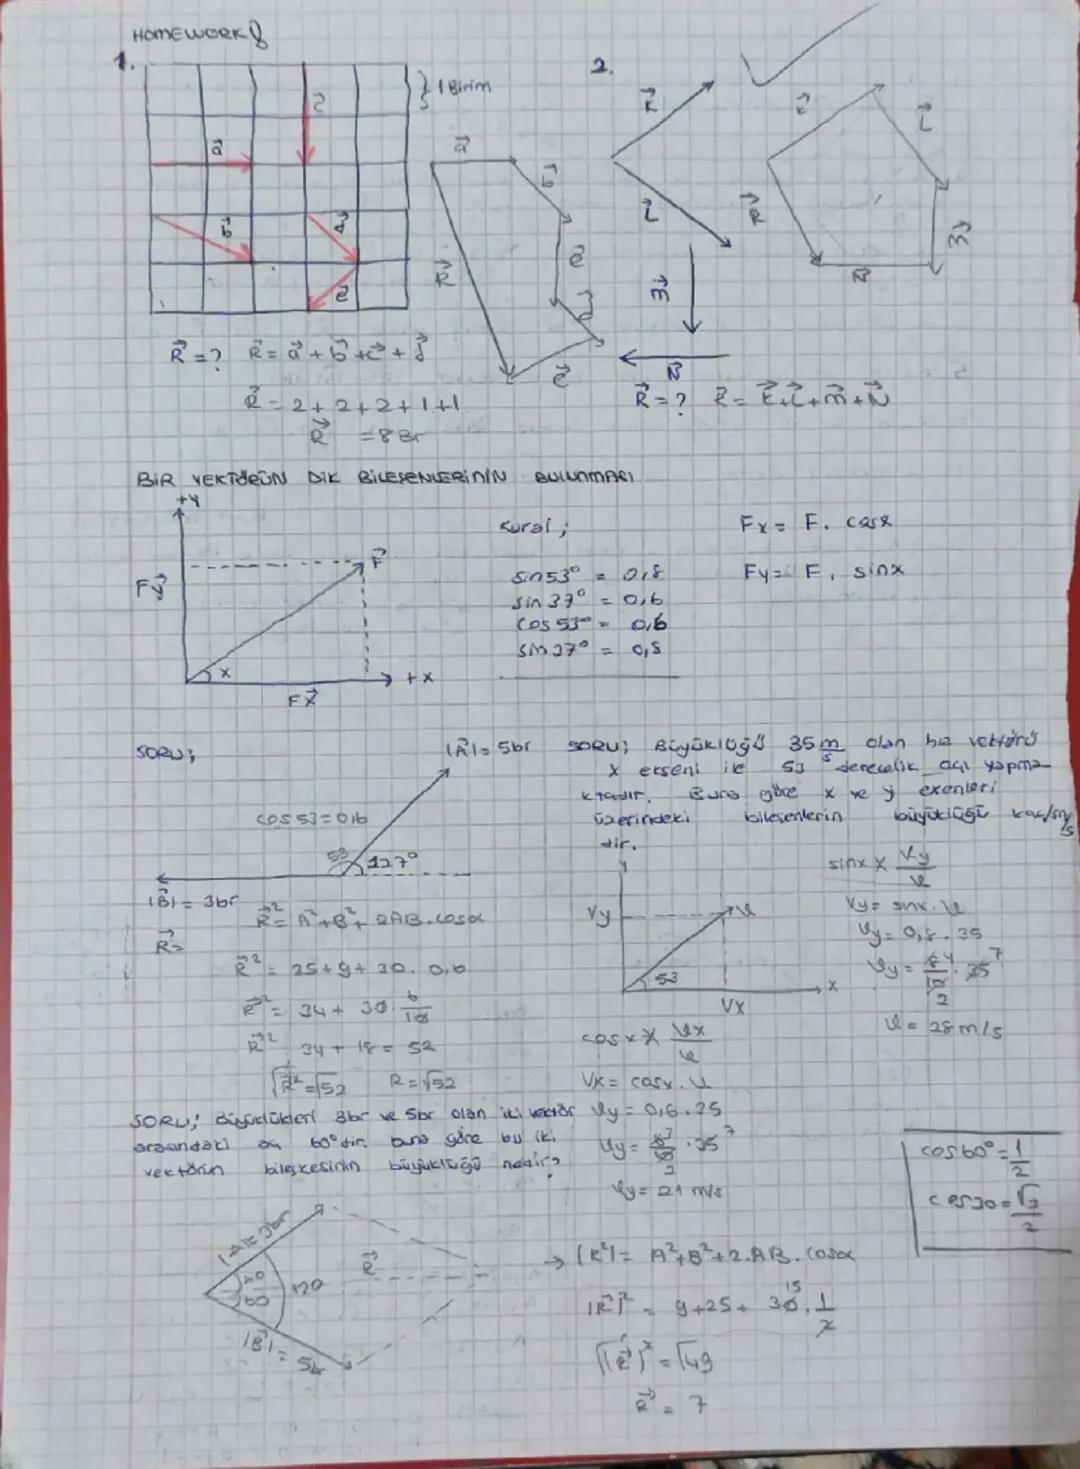 HOMEWORK
1.
1 Birim
a
c
b
d
e
R = ? R = a + b + c + d
R = 2 + 2 + 2 + 1 + 1
R = 8 Br
a
b
c
d
e
R
2.
K
L
M
N
R = ? R = K + L + M + N
K
L
M
N
R
BİR VEKTÖRÜN DİK BİLEŞENLERİNİN BULUNMASI
+y
Fy
F
x
Fx
+x
Kural ;
sin53° = 0,8
sin 37° = 0,6
cos 53° = 0,6
sin 37° = 0,8
Fx = F. cosx
Fy = F. sinx
SORU;
|A| = 5br
cos 53 = 0,6
53
127°
|B| = 3br
R =
R² = A² + B² + 2AB.cosα
R² = 25 + 9 + 30. 0,6
R² = 34 + 30 . 6/10
R² 34 + 18 = 52
√R² = √52 R = √52
SORU; Büyüklüğü 35 m/s olan hız vektörü
x ekseni ile 53 derecelik açı yapma
ktadır. Buna göre x ve y exenleri
üzerindeki bileşenlerin büyüklüğü kaç m/s
dir.
y
Vy
V
53
Vx
x
sinx Vy/V
Vy = sinx. V
Vy = 0,8 . 35
Vy = 8/10 . 35
V = 28 m/s
cosx Vx/V
Vx = cosx. V
Vy = 0,6 . 35
Vy = 6/10 . 35
Vy = 21 m/s
SORU; Büyüklükleri 3br ve 5br olan iki vektör
arasındaki açı 60° dir. buna göre bu iki
vektörün bileşkesinin büyüklüğü nedir?
|A| = 3br
60
60
120
R
|B| = 5br
→ |R²| = A² + B² + 2.AB. cosα
|R|² = 9 + 25 + 30 . 1/2
√|R|² = √49
R = 7
cos60° = 1/2
cos30 = √3/2